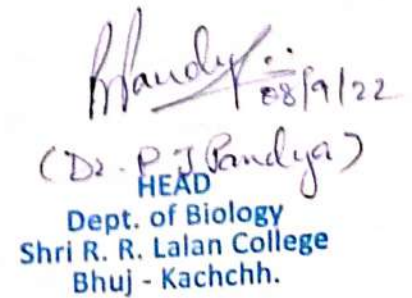 PPandya
08/9/22
(Dr. P J Pandya)
HEAD
Dept. of Biology
Shri R. R. Lalan College
Bhuj - Kachchh.